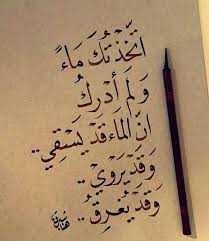 اتَّخَذْتُكَ مَاءً
وَلَم أَدرِكُ
انَّ المَاءَ قَد يَسْقِي..
وَقَد يَروِي..
وَقَد يُغرِقُ..